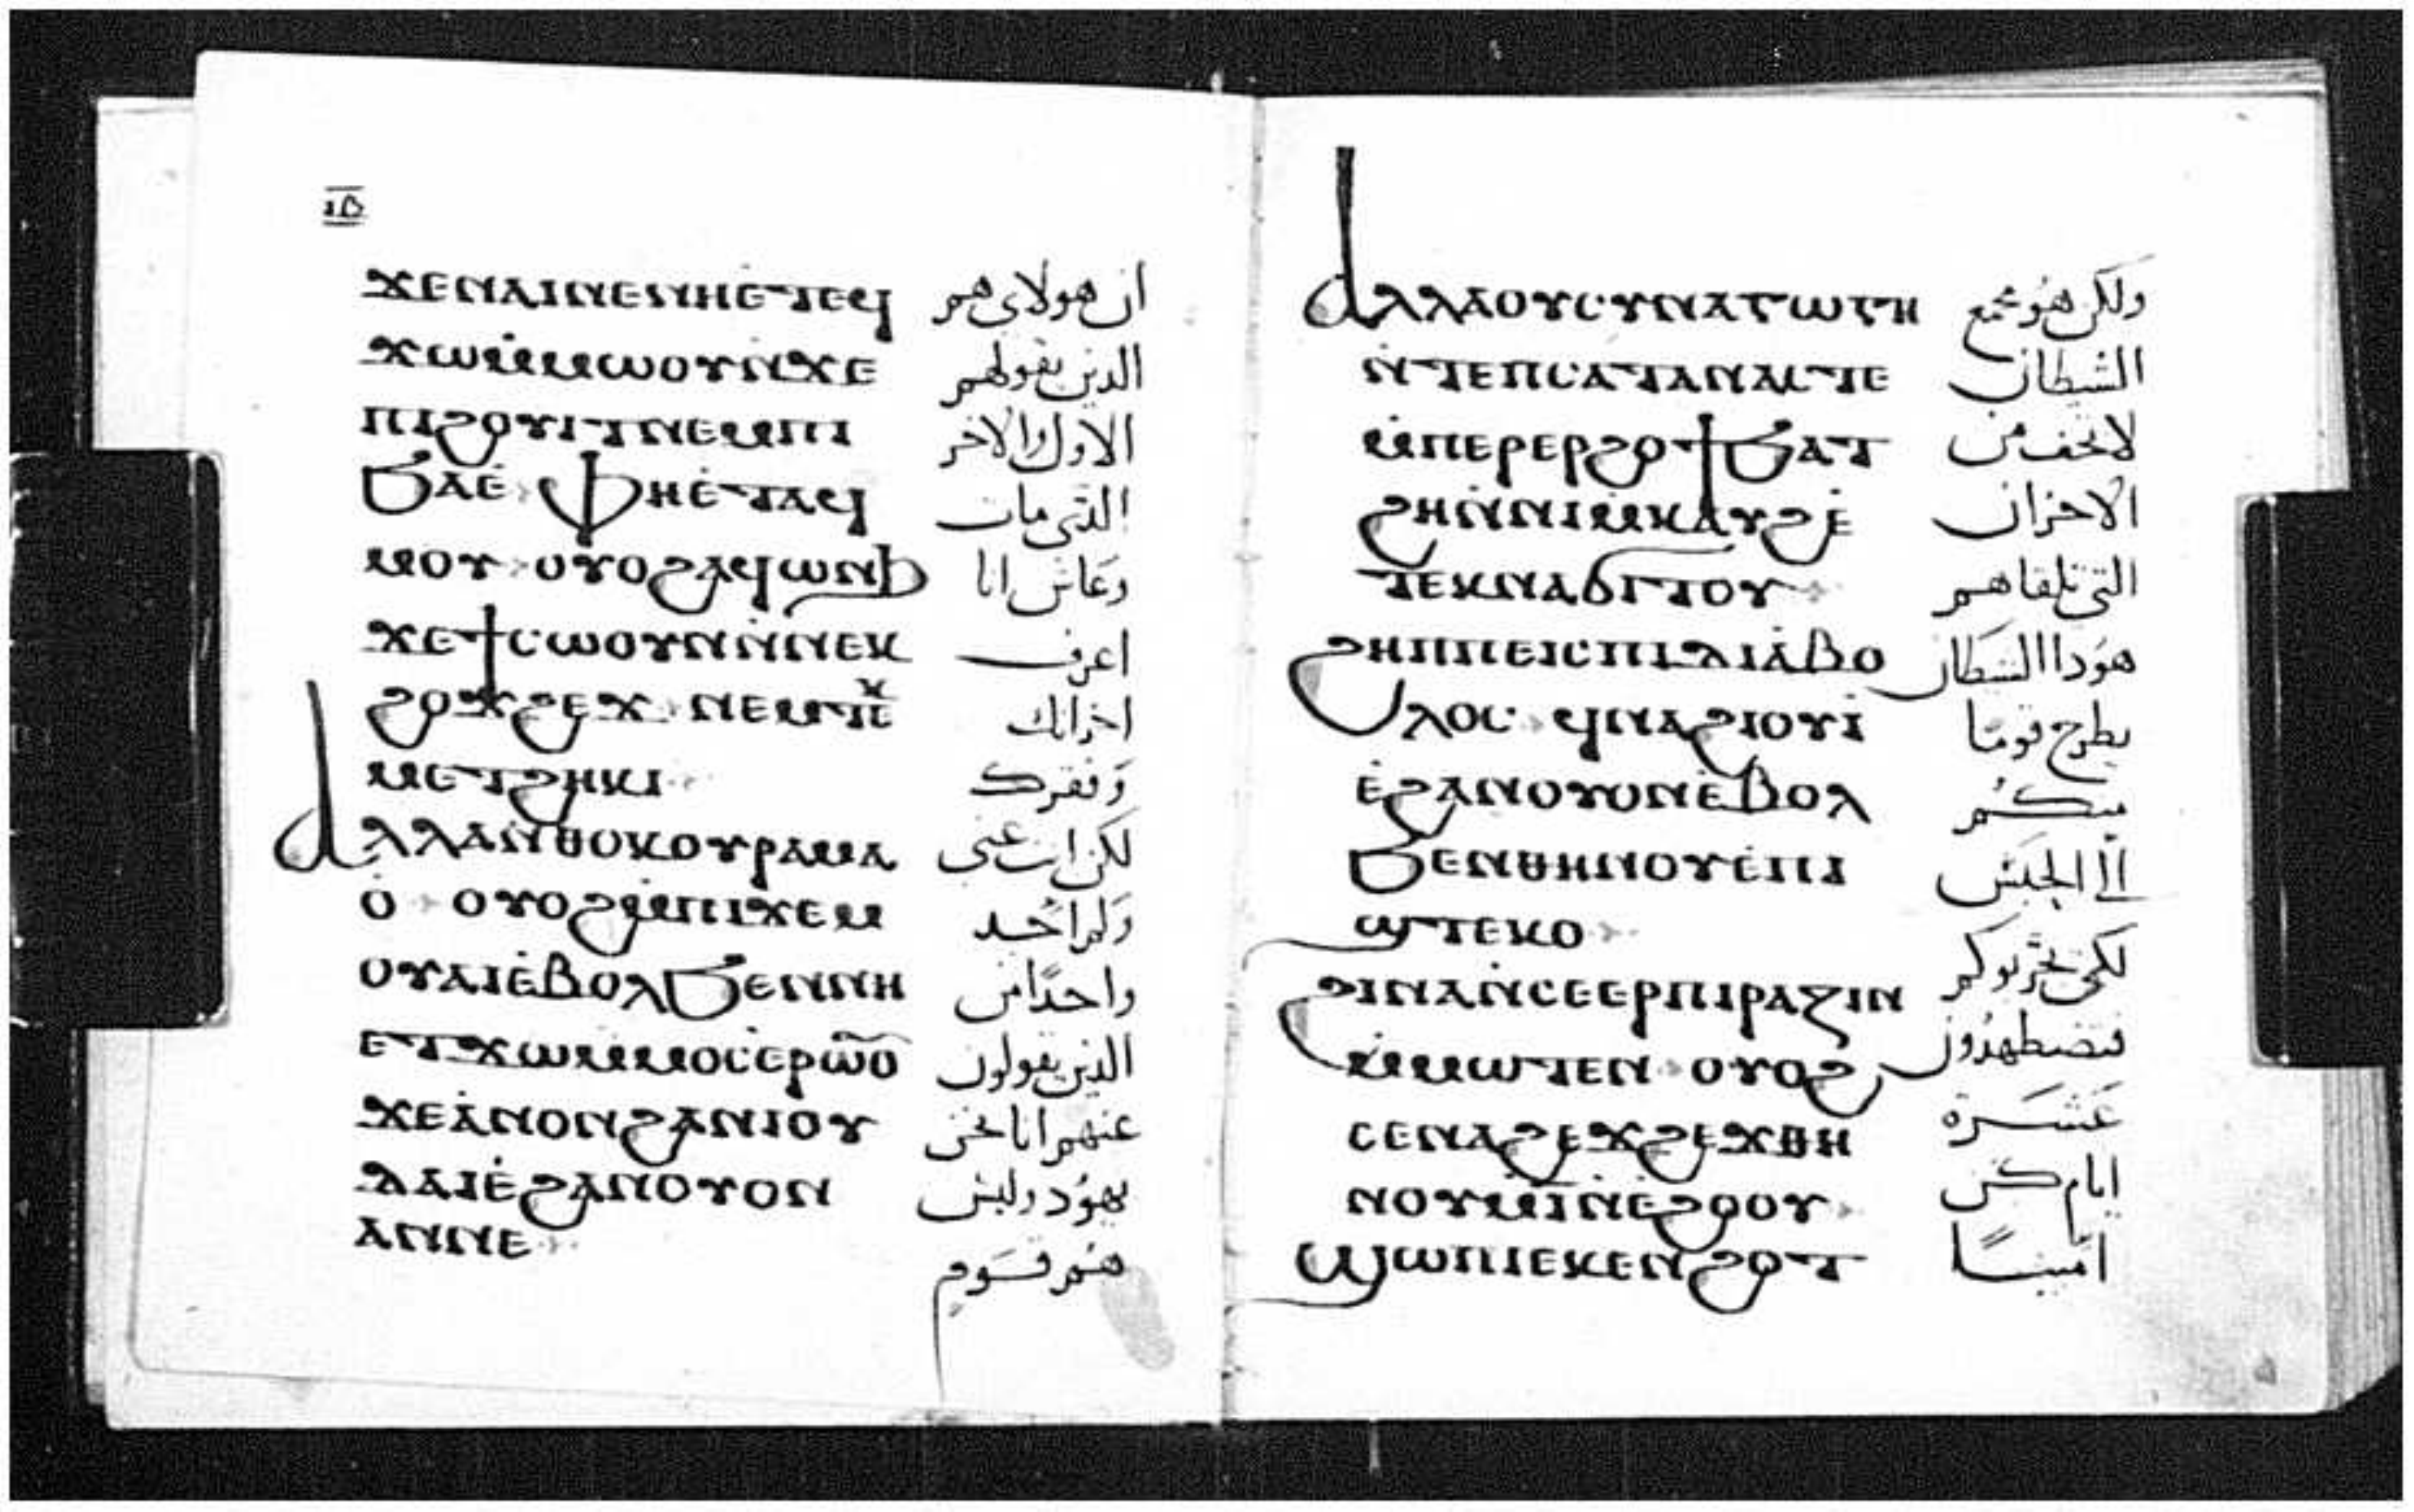 ⲓⲃ
ϫⲉⲛⲁⲓⲛⲉⲛⲏⲉ̇ⲧⲉϥ ان هولاى هم
ϫⲱⲙ̇ⲙⲱⲟⲩⲛ̇ϫⲉ الدين يقولهم
ⲡⲓϩⲟⲩⲓⲧⲛⲉⲙⲡⲓ الاول والاخر
ϧⲁⲉ̇ ⲫⲏⲉ̇ⲧⲁϥ الذى مات
ⲙⲟⲩ ⲟⲩⲟϩⲁϥⲱⲛϧ وعاش انا
ϫⲉϯⲥⲱⲟⲩⲛⲛ̇ⲛⲉⲕ اعرف
ϩⲟϫϩⲉϫ ⲛⲉⲙⲧⲉⲕ احزانك
ⲙⲉⲧϩⲏⲕⲓ وفقرك
ⲁⲗⲗⲁⲛ̇ⲑⲟⲕⲟⲩⲣⲁⲙⲁ لكن انت غنى
ⲟ̇ ⲟⲩⲟϩⲙ̇ⲡⲓϫⲉⲙ ولم اجد
ⲟⲩⲁⲓⲉ̇ⲃⲟⲗϧⲉⲛⲛⲏ واحدًا من
ⲉⲧϫⲱⲙ̇ⲙⲟⲥⲉ̇ⲣⲱⲟⲩ الذين يقولون
ϫⲉⲁ̇ⲛⲟⲛϩⲁⲛⲓⲟⲩ عنهم انا نحن
ⲇⲁⲓⲉ̇ϩⲁⲛⲟⲩⲟⲛ يهود وليس
ⲁⲛⲛⲉ هم قوم
ⲁⲗⲗⲁⲟⲩⲥⲩⲛⲁⲅⲱⲅⲏ ولكن هو مجمع
ⲛ̇ⲧⲉⲡⲥⲁⲧⲁⲛⲁⲥⲧⲉ الشيطان
ⲙ̇ⲡⲉⲣⲉⲣϩⲟϯϧⲁⲧ لا تخف من
ϩⲏⲛ̇ⲛⲓⲙ̇ⲕⲁⲩϩⲉ̇ الاحزان
ⲧⲉⲕⲛⲁϭⲓⲧⲟⲩ التى تلقاهم
ϩⲏⲡⲡⲉⲓⲥⲡⲓⲇⲓⲁ̇ⲃⲟ هودا الشيطان
ⲗⲟⲥ ϥⲛⲁϩⲓⲟⲩⲓ̇ يطرح قومًا
ⲉ̇ϩⲁⲛⲟⲩⲟⲛⲉ̇ⲃⲟⲗ منكم
ϧⲉⲛⲑⲏⲛⲟⲩⲉ̇ⲡⲓ الى الحبس
ϣⲧⲉⲕⲟ لكى يجربوكم
ϩⲓⲛⲁⲛ̇ⲥⲉⲉⲣⲡⲓⲣⲁⲍⲓⲛ فتضطهدون
ⲙ̇ⲙⲱⲧⲉⲛ ⲟⲩⲟϩ عشرة
ⲥⲉⲛⲁϩⲉϫϩⲉϫⲑⲏ ايام كن
ⲛⲟⲩⲙ̇ⲓ̅ⲛ̇ⲉ̇ϩⲟⲟⲩ امينًا
ϣⲱⲡⲓⲉⲕⲉⲛϩⲟⲧ